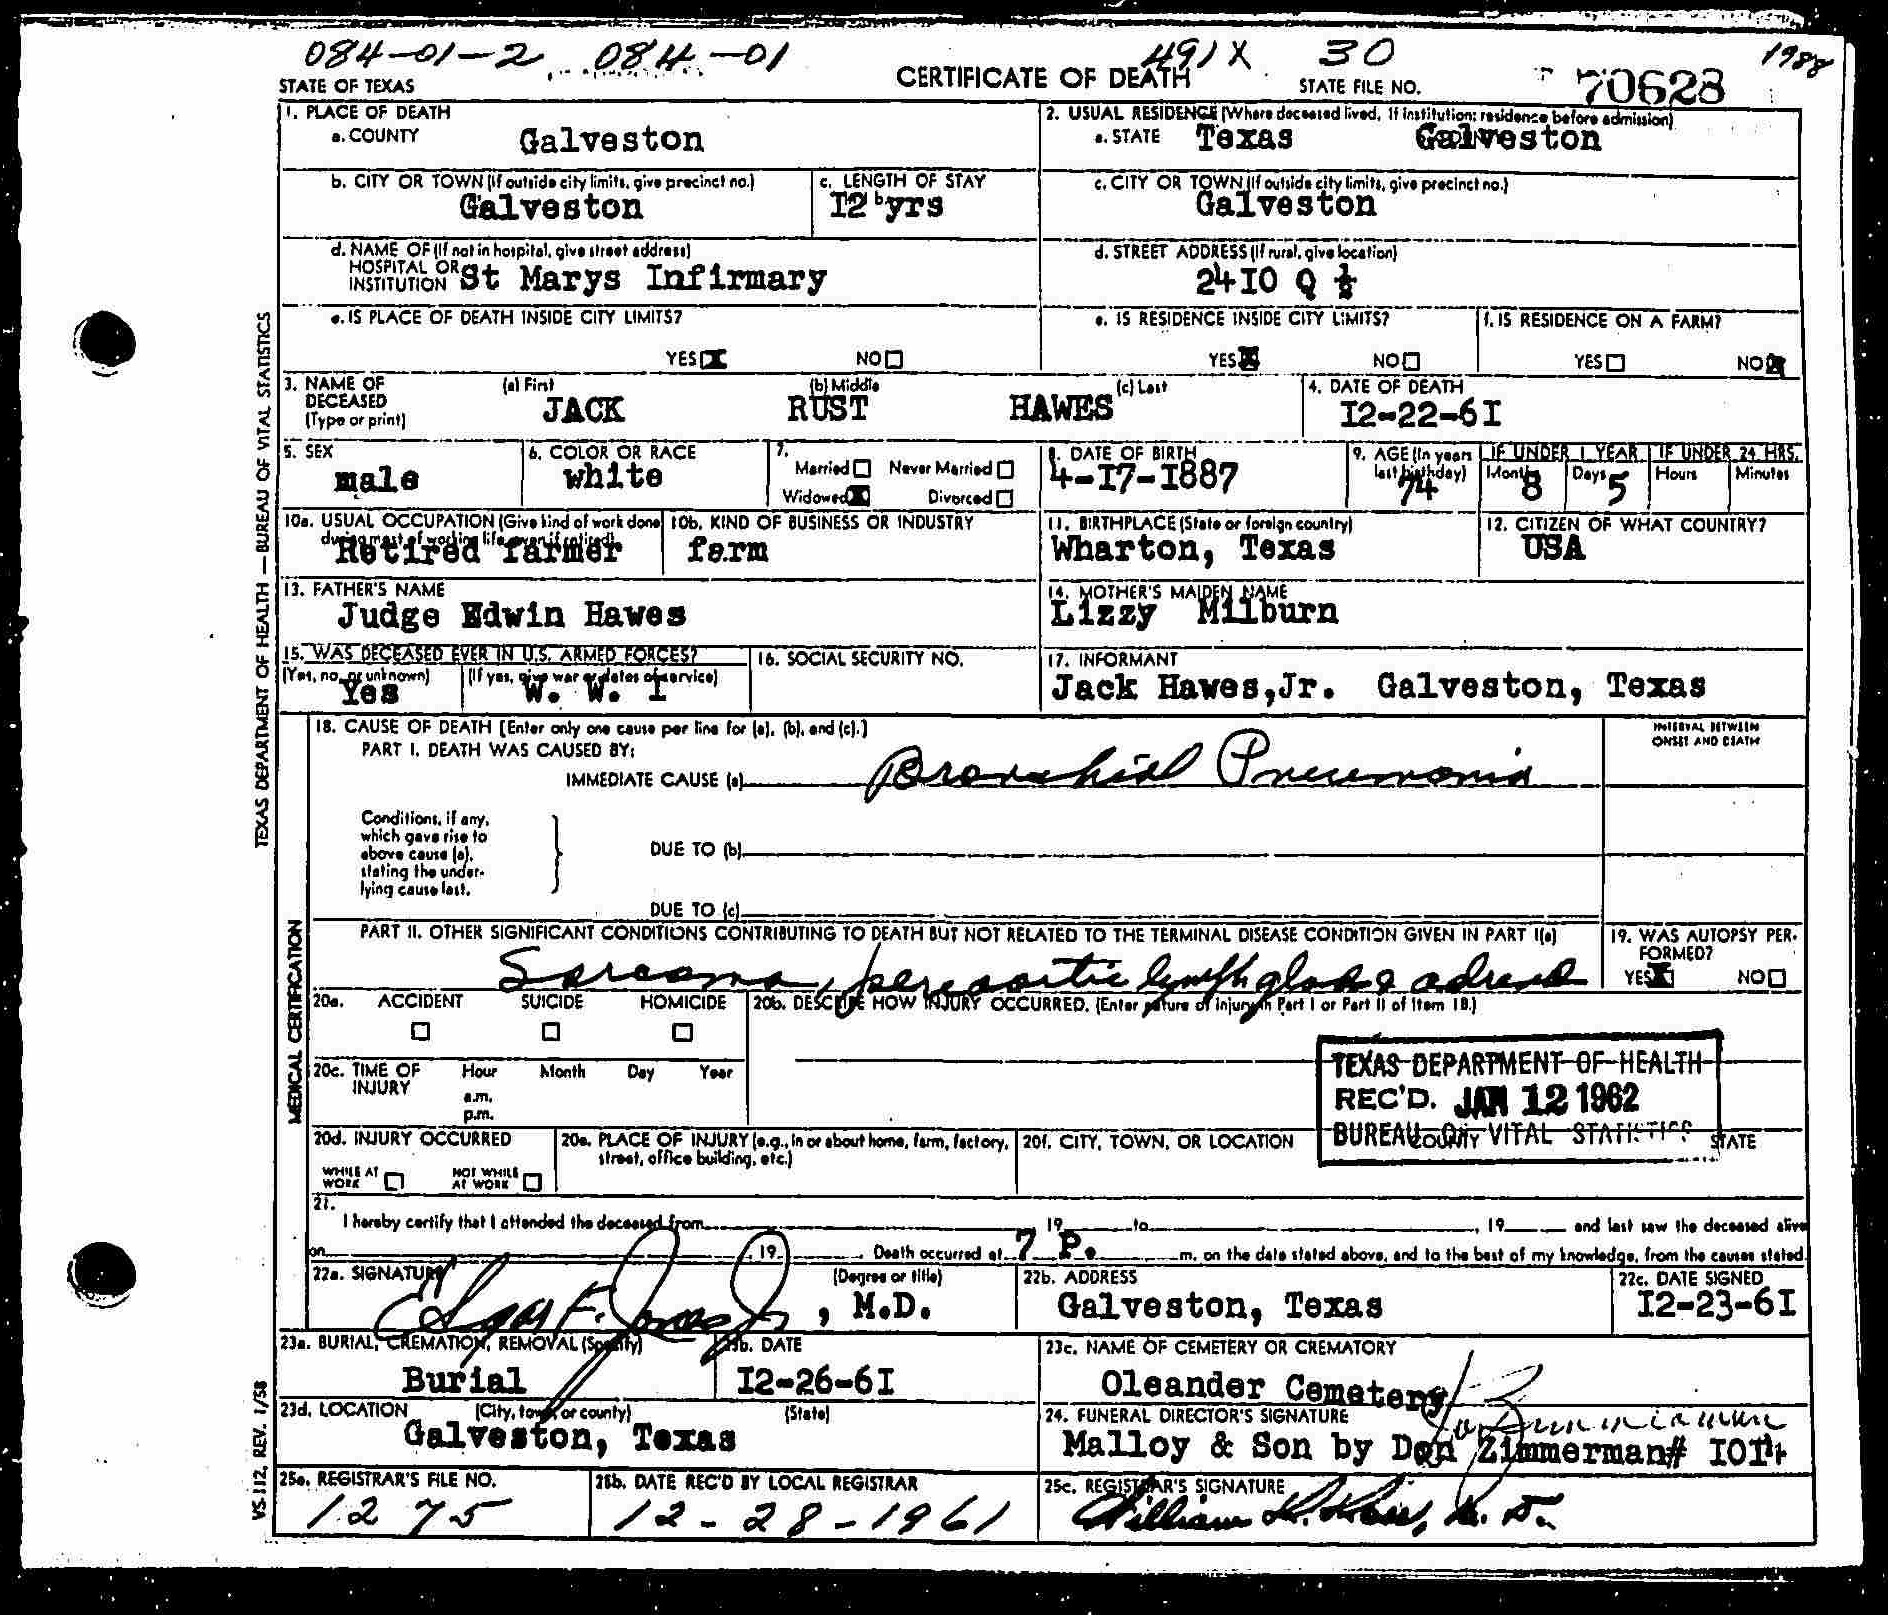 084-01-2 084-01 491X 30 1988
STATE OF TEXAS CERTIFICATE OF DEATH STATE FILE NO. 70628
1. PLACE OF DEATH
a. COUNTY Galveston
2. USUAL RESIDENCE (Where deceased lived, If institution: residence before admission)
a. STATE Texas Galveston
b. CITY OR TOWN (If outside city limits, give precinct no.)
Galveston
c. LENGTH OF STAY
12 yrs
c. CITY OR TOWN (If outside city limits, give precinct no.)
Galveston
d. NAME OF (If not in hospital, give street address)
HOSPITAL OR
INSTITUTION St Marys Infirmary
d. STREET ADDRESS (If rural, give location)
2410 Q ½
e. IS PLACE OF DEATH INSIDE CITY LIMITS?
YES X NO
e. IS RESIDENCE INSIDE CITY LIMITS?
YES X NO
f. IS RESIDENCE ON A FARM?
YES NO X
3. NAME OF
DECEASED
(Type or print)
(a) First (b) Middle (c) Last
JACK RUST HAWES
4. DATE OF DEATH
12-22-61
5. SEX
male
6. COLOR OR RACE
white
7.
Married Never Married
Widowed X Divorced
8. DATE OF BIRTH
4-17-1887
9. AGE (In years
last birthday)
74
IF UNDER 1 YEAR
Months 8 Days 5
IF UNDER 24 HRS.
Hours Minutes
10a. USUAL OCCUPATION (Give kind of work done
during most of working life, even if retired)
Retired farmer
10b. KIND OF BUSINESS OR INDUSTRY
farm
11. BIRTHPLACE (State or foreign country)
Wharton, Texas
12. CITIZEN OF WHAT COUNTRY?
USA
13. FATHER'S NAME
Judge Edwin Hawes
14. MOTHER'S MAIDEN NAME
Lizzy Milburn
15. WAS DECEASED EVER IN U.S. ARMED FORCES?
(Yes, no, or unknown) (If yes, give war or dates of service)
Yes W. W. I
16. SOCIAL SECURITY NO.
17. INFORMANT
Jack Hawes, Jr. Galveston, Texas
18. CAUSE OF DEATH [Enter only one cause per line for (a), (b), and (c).]
PART I. DEATH WAS CAUSED BY:
IMMEDIATE CAUSE (a) Bronchial Pneumonia
INTERVAL BETWEEN
ONSET AND DEATH
Conditions, if any,
which gave rise to
above cause (a),
stating the under-
lying cause last.
DUE TO (b)
DUE TO (c)
PART II. OTHER SIGNIFICANT CONDITIONS CONTRIBUTING TO DEATH BUT NOT RELATED TO THE TERMINAL DISEASE CONDITION GIVEN IN PART I(a)
Sarcoma, periaortic lymph glands adrenal
19. WAS AUTOPSY PER-
FORMED?
YES X NO
20a. ACCIDENT SUICIDE HOMICIDE
20b. DESCRIBE HOW INJURY OCCURRED. (Enter nature of injury in Part I or Part II of Item 18.)
20c. TIME OF
INJURY
Hour Month Day Year
a.m.
p.m.
TEXAS DEPARTMENT OF HEALTH
REC'D. JAN 12 1962
BUREAU OF VITAL STATISTICS
20d. INJURY OCCURRED
WHILE AT
WORK
NOT WHILE
AT WORK
20e. PLACE OF INJURY (e.g., in or about home, farm, factory,
street, office building, etc.)
20f. CITY, TOWN, OR LOCATION COUNTY STATE
21.
I hereby certify that I attended the deceased from 19 to , 19 and last saw the deceased alive
on , 19 . Death occurred at 7 P. m. on the date stated above, and to the best of my knowledge, from the causes stated.
22a. SIGNATURE (Degree or title)
Edgar F. , M.D.
22b. ADDRESS
Galveston, Texas
22c. DATE SIGNED
12-23-61
23a. BURIAL, CREMATION, REMOVAL (Specify)
Burial
23b. DATE
12-26-61
23c. NAME OF CEMETERY OR CREMATORY
Oleander Cemetery
23d. LOCATION (City, town, or county) (State)
Galveston, Texas
24. FUNERAL DIRECTOR'S SIGNATURE
Malloy & Son by Don Zimmerman# 1014
25a. REGISTRAR'S FILE NO.
1275
25b. DATE REC'D BY LOCAL REGISTRAR
12-28-1961
25c. REGISTRAR'S SIGNATURE
William
TEXAS DEPARTMENT OF HEALTH — BUREAU OF VITAL STATISTICS
MEDICAL CERTIFICATION
VS-112, REV. 1/58